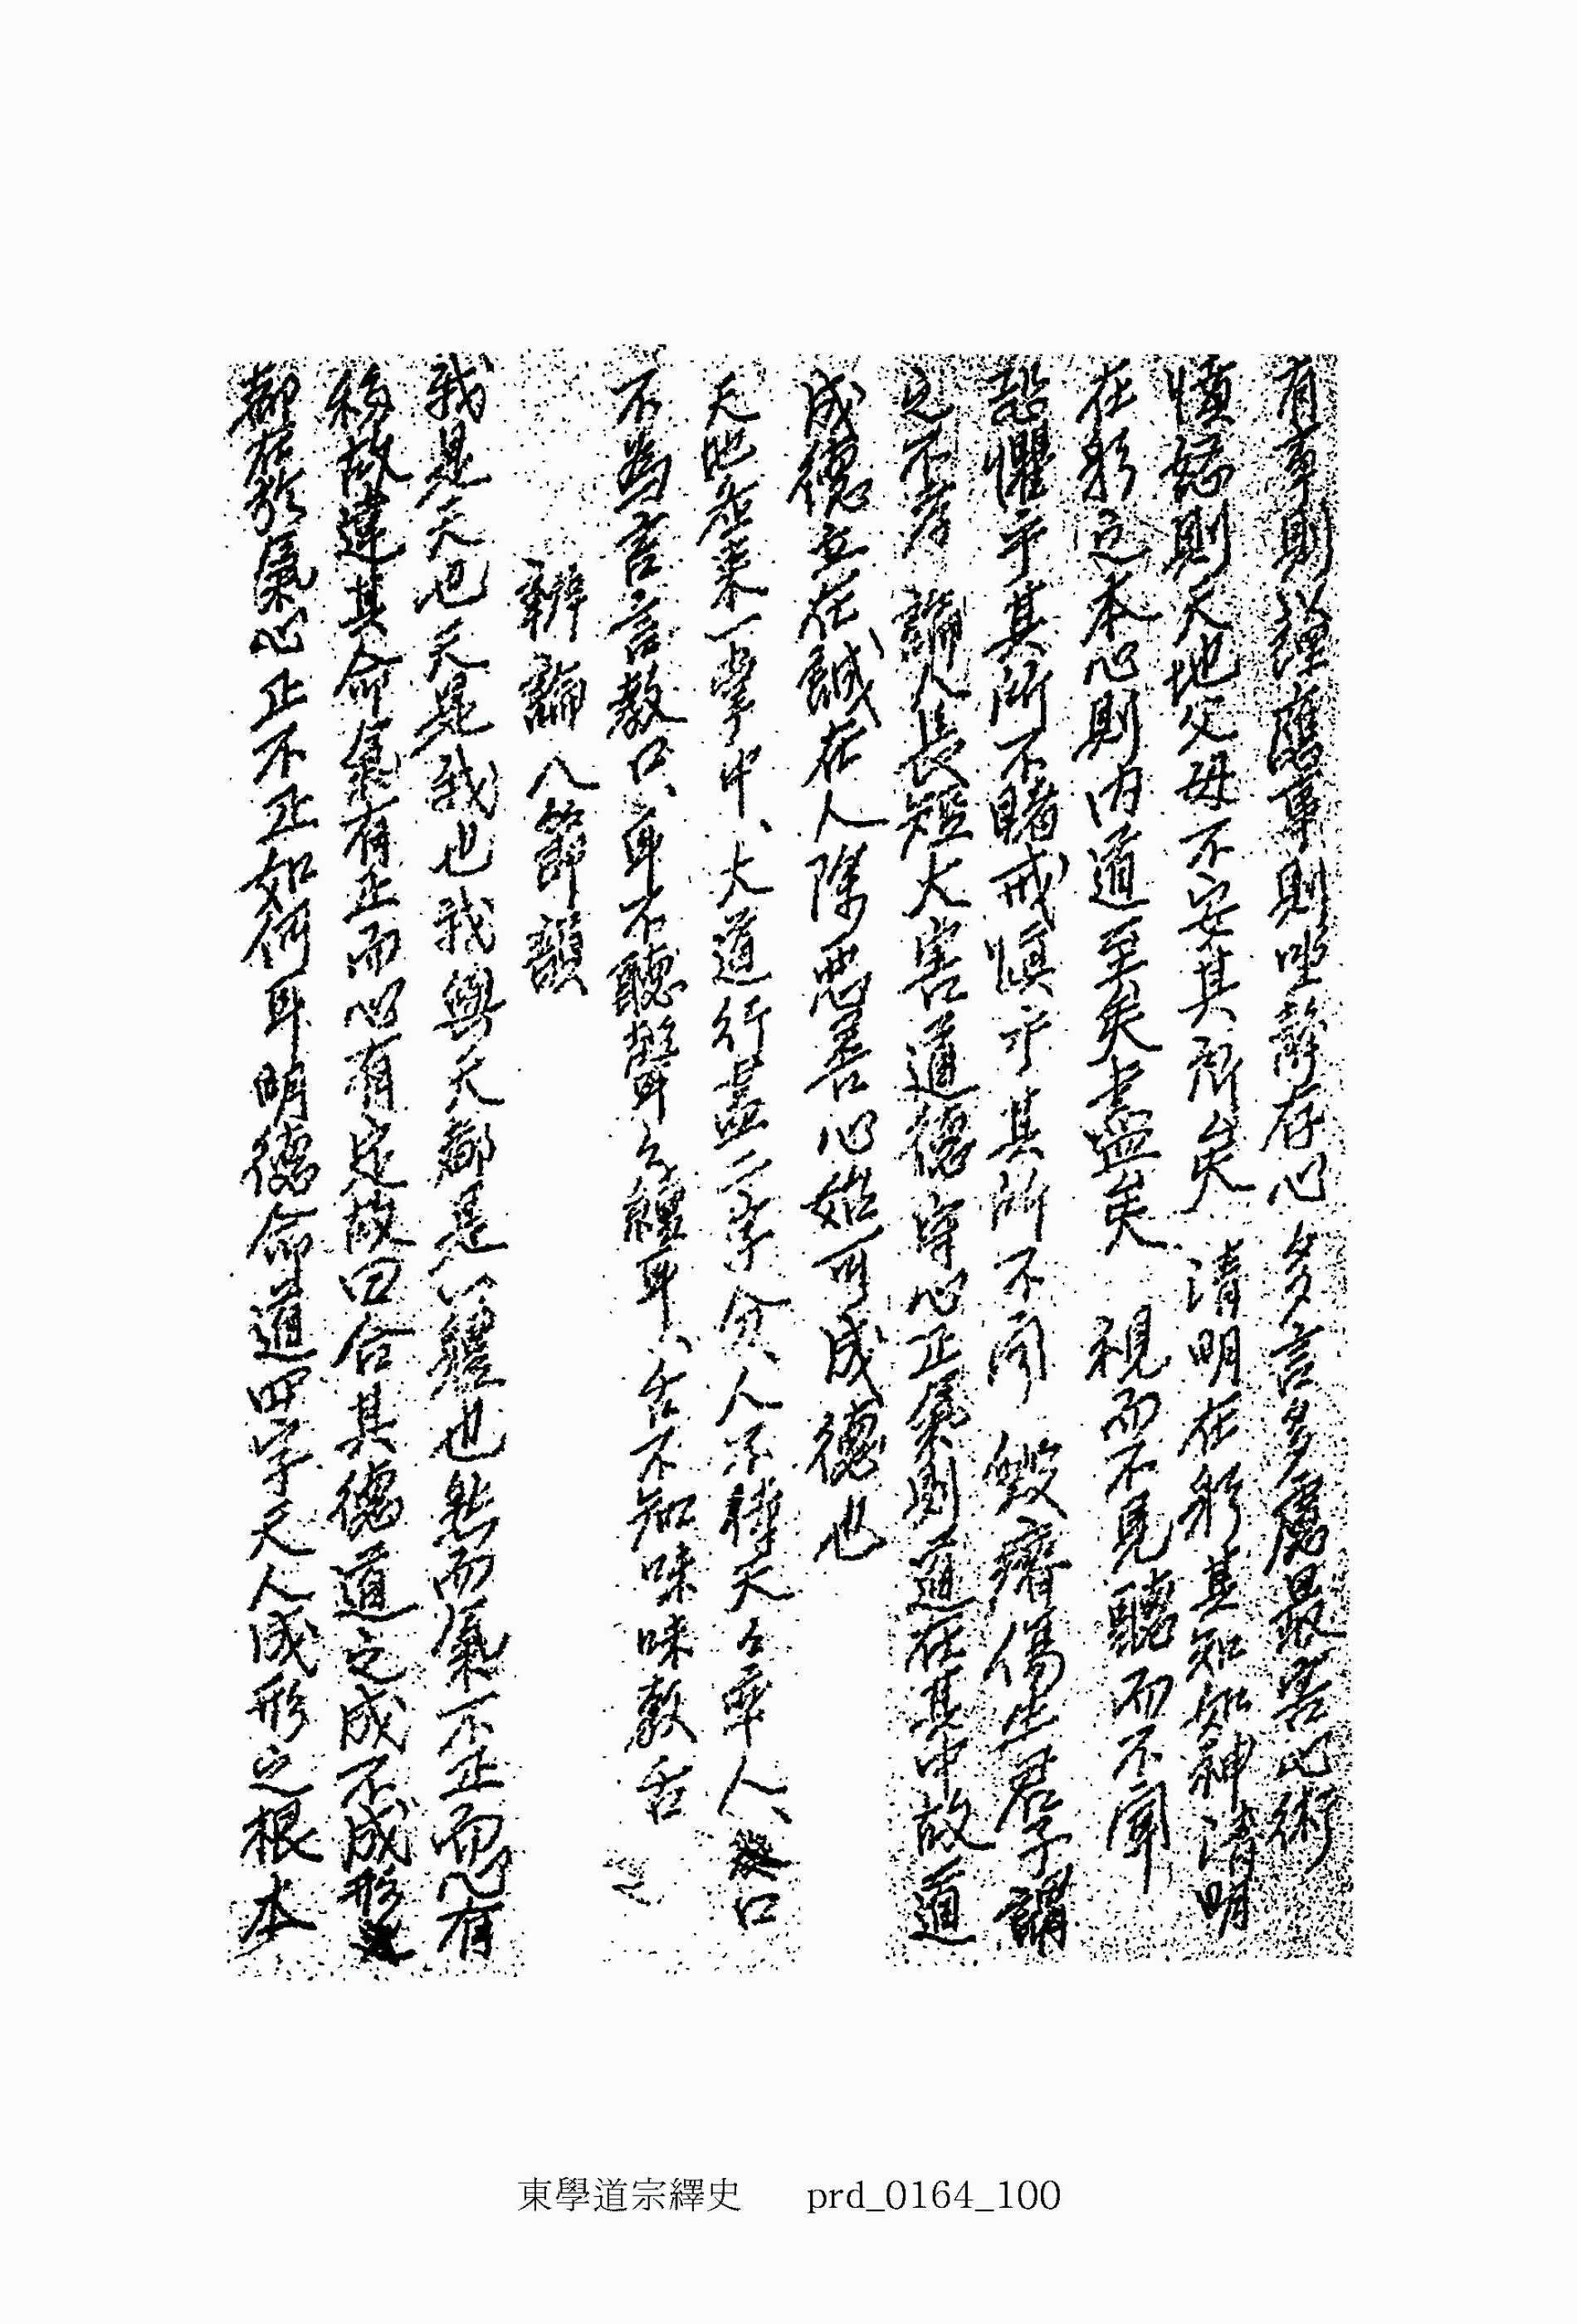 有事則以理應事則坐靜存心 多言多慮最害心術
憤怒則天地父母不安其所矣 清明在躬其知如神清明
在躬之本心則內道至矣盡矣 視而不見聽而不聞
恐懼乎其所不睹戒愼乎其所不聞 毀瘠傷生君子謂
之不孝 論人長短大害道德守心正氣則道在其中故道
成德立在誠在人除惡善心始可成德也
天地卷來一掌中、大道行盡二字分、人不待天々率人、口
不爲言言敎口、耳不聽聲々纏耳、舌不知味味敎舌
辨論八節韻
我是天也天是我也我與天都是一體也然而氣不正而心有
移故違其命氣有正而心有定故曰合其德道之成不成形
都在於氣心正不正如何耳明德命道四字天人成形之根本
東學道宗繹史 prd_0164_100